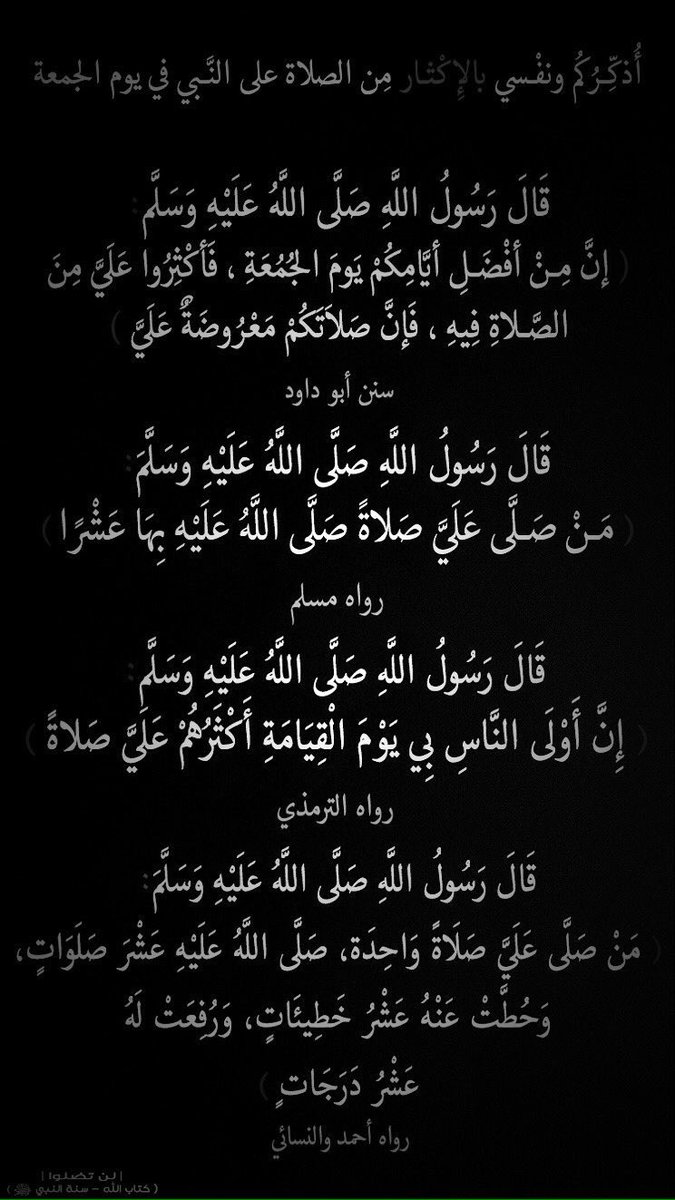 أُذكِّـرُكُم ونفْـسي بالإِكْثـار مِن الصلاة على النَّـبي في يوم الجمعة
قَالَ رَسُولُ اللَّهِ صَلَّى اللَّهُ عَلَيْهِ وَسَلَّم:
( إنَّ مِـنْ أفْضَـلِ أيَّامِكُمْ يَومَ الجُمُعَةِ ، فَأكْثِرُوا عَلَيَّ مِنَ
الصَّـلاةِ فِيهِ ، فَإنَّ صَلاَتَكُمْ مَعْرُوضَةٌ عَلَيَّ )
سنن أبو داود
قَالَ رَسُولُ اللَّهِ صَلَّى اللَّهُ عَلَيْهِ وَسَلَّمَ:
( مَـنْ صَـلَّى عَلَيَّ صَلاةً صَلَّى اللَّهُ عَلَيْهِ بِهَا عَشْرًا )
رواه مسلم
قَالَ رَسُولُ اللَّهِ صَلَّى اللَّهُ عَلَيْهِ وَسَلَّم:
( إِنَّ أَوْلَى النَّاسِ بِي يَوْمَ الْقِيَامَةِ أَكْثَرُهُمْ عَلَيَّ صَلاةً )
رواه الترمذي
قَالَ رَسُولُ اللَّهِ صَلَّى اللَّهُ عَلَيْهِ وَسَلَّمَ:
( مَنْ صَلَّى عَلَيَّ صَلَاةً وَاحِدَة، صَلَّى اللَّهُ عَلَيْهِ عَشْرَ صَلَوَاتٍ،
وَحُطَّتْ عَنْهُ عَشْرُ خَطِيئَاتٍ، وَرُفِعَتْ لَهُ
عَشْرُ دَرَجَاتٍ )
رواه أحمد والنسائي
| لن تضلوا |
( كتاب الله - سنة النبي ﷺ )